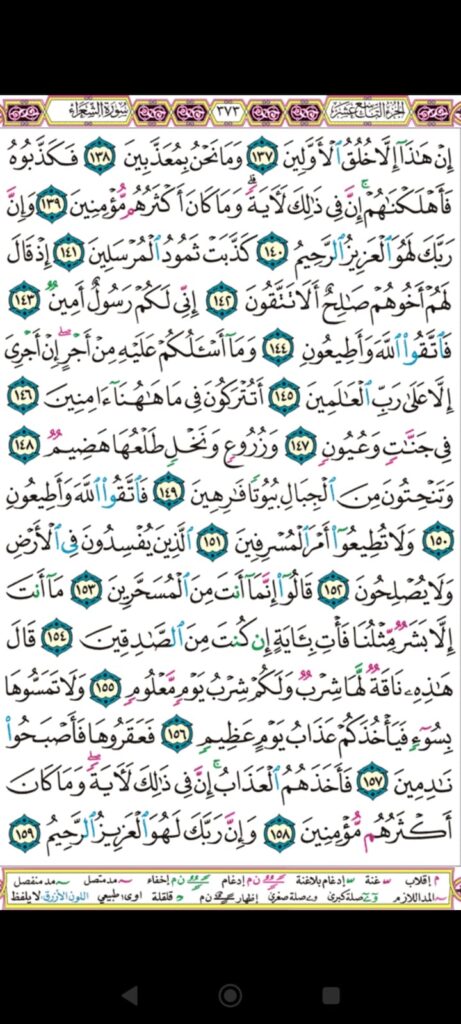 الجزء التاسع عشر ٣٧٣ سورة الشعراء
إِنْ هَٰذَآ إِلَّا خُلُقُ ٱلْأَوَّلِينَ ١٣٧ وَمَا نَحْنُ بِمُعَذَّبِينَ ١٣٨ فَكَذَّبُوهُ
فَأَهْلَكْنَٰهُمْ ۗ إِنَّ فِى ذَٰلِكَ لَءَايَةً ۖ وَمَا كَانَ أَكْثَرُهُم مُّؤْمِنِينَ ١٣٩ وَإِنَّ
رَبَّكَ لَهُوَ ٱلْعَزِيزُ ٱلرَّحِيمُ ١٤٠ كَذَّبَتْ ثَمُودُ ٱلْمُرْسَلِينَ ١٤١ إِذْ قَالَ
لَهُمْ أَخُوهُمْ صَٰلِحٌ أَلَا تَتَّقُونَ ١٤٢ إِنِّى لَكُمْ رَسُولٌ أَمِينٌ ١٤٣
فَٱتَّقُوا۟ ٱللَّهَ وَأَطِيعُونِ ١٤٤ وَمَآ أَسْـَٔلُكُمْ عَلَيْهِ مِنْ أَجْرٍ ۖ إِنْ أَجْرِىَ
إِلَّا عَلَىٰ رَبِّ ٱلْعَٰلَمِينَ ١٤٥ أَتُتْرَكُونَ فِى مَا هَٰهُنَآ ءَامِنِينَ ١٤٦
فِى جَنَّٰتٍ وَعُيُونٍ ١٤٧ وَزُرُوعٍ وَنَخْلٍ طَلْعُهَا هَضِيمٌ ١٤٨
وَتَنْحِتُونَ مِنَ ٱلْجِبَالِ بُيُوتًا فَٰرِهِينَ ١٤٩ فَٱتَّقُوا۟ ٱللَّهَ وَأَطِيعُونِ
١٥٠ وَلَا تُطِيعُوٓا۟ أَمْرَ ٱلْمُسْرِفِينَ ١٥١ ٱلَّذِينَ يُفْسِدُونَ فِى ٱلْأَرْضِ
وَلَا يُصْلِحُونَ ١٥٢ قَالُوٓا۟ إِنَّمَآ أَنتَ مِنَ ٱلْمُسَحَّرِينَ ١٥٣ مَآ أَنتَ
إِلَّا بَشَرٌ مِّثْلُنَا فَأْتِ بِـَٔايَةٍ إِن كُنتَ مِنَ ٱلصَّٰدِقِينَ ١٥٤ قَالَ
هَٰذِهِۦ نَاقَةٌ لَّهَا شِرْبٌ وَلَكُمْ شِرْبُ يَوْمٍ مَّعْلُومٍ ١٥٥ وَلَا تَمَسُّوهَا
بِسُوٓءٍ فَيَأْخُذَكُمْ عَذَابُ يَوْمٍ عَظِيمٍ ١٥٦ فَعَقَرُوهَا فَأَصْبَحُوا۟
نَٰدِمِينَ ١٥٧ فَأَخَذَهُمُ ٱلْعَذَابُ ۗ إِنَّ فِى ذَٰلِكَ لَءَايَةً ۖ وَمَا كَانَ
أَكْثَرُهُم مُّؤْمِنِينَ ١٥٨ وَإِنَّ رَبَّكَ لَهُوَ ٱلْعَزِيزُ ٱلرَّحِيمُ ١٥٩
م إقلاب غنة إدغام بلاغنة ن م إدغام ن م إخفاء مد متصل مد منفصل
المد اللازم صلة كبرى صلة صغرى إظهار ن م قلقلة اوى: طبيعي اللون الأزرق: لا يلفظ